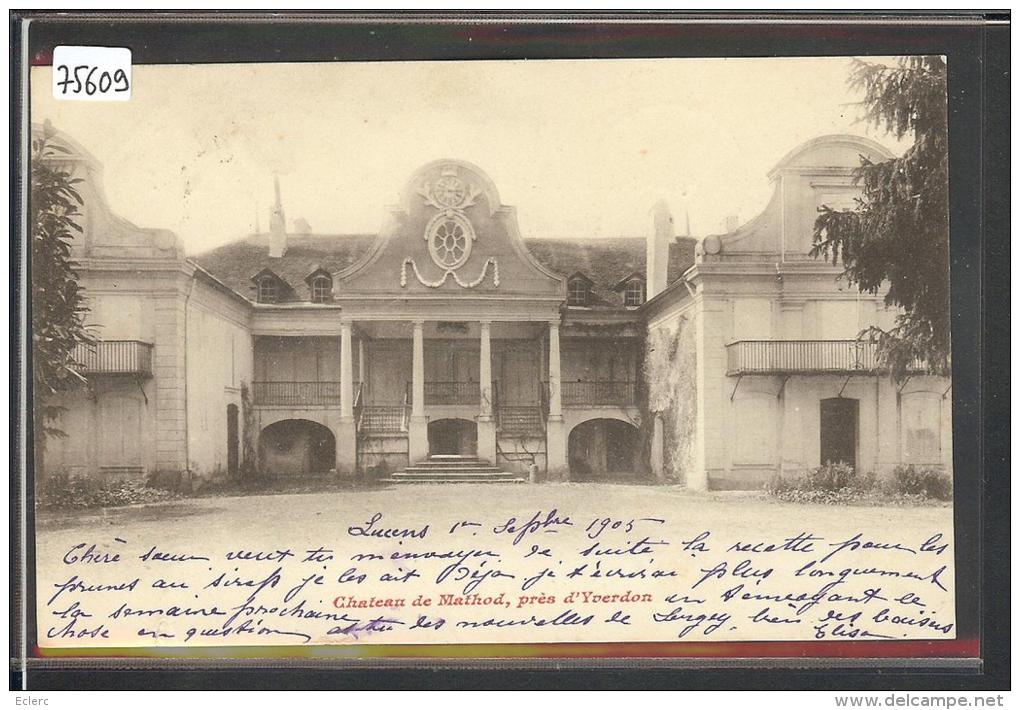 75609
Lucens 1er Sepbre 1905
Chère sœur veut tu m'envoyer de suite la recette pour les
prunes au sirop je les ait Déja je t'écrirai plus longuement
la semaine prochaine en t'envoyant le
Chateau de Mathod, près d'Yverdon
chose en question as tu des nouvelles de Sergey. bien des baisers
Elisa.
Eclerc
www.delcampe.net